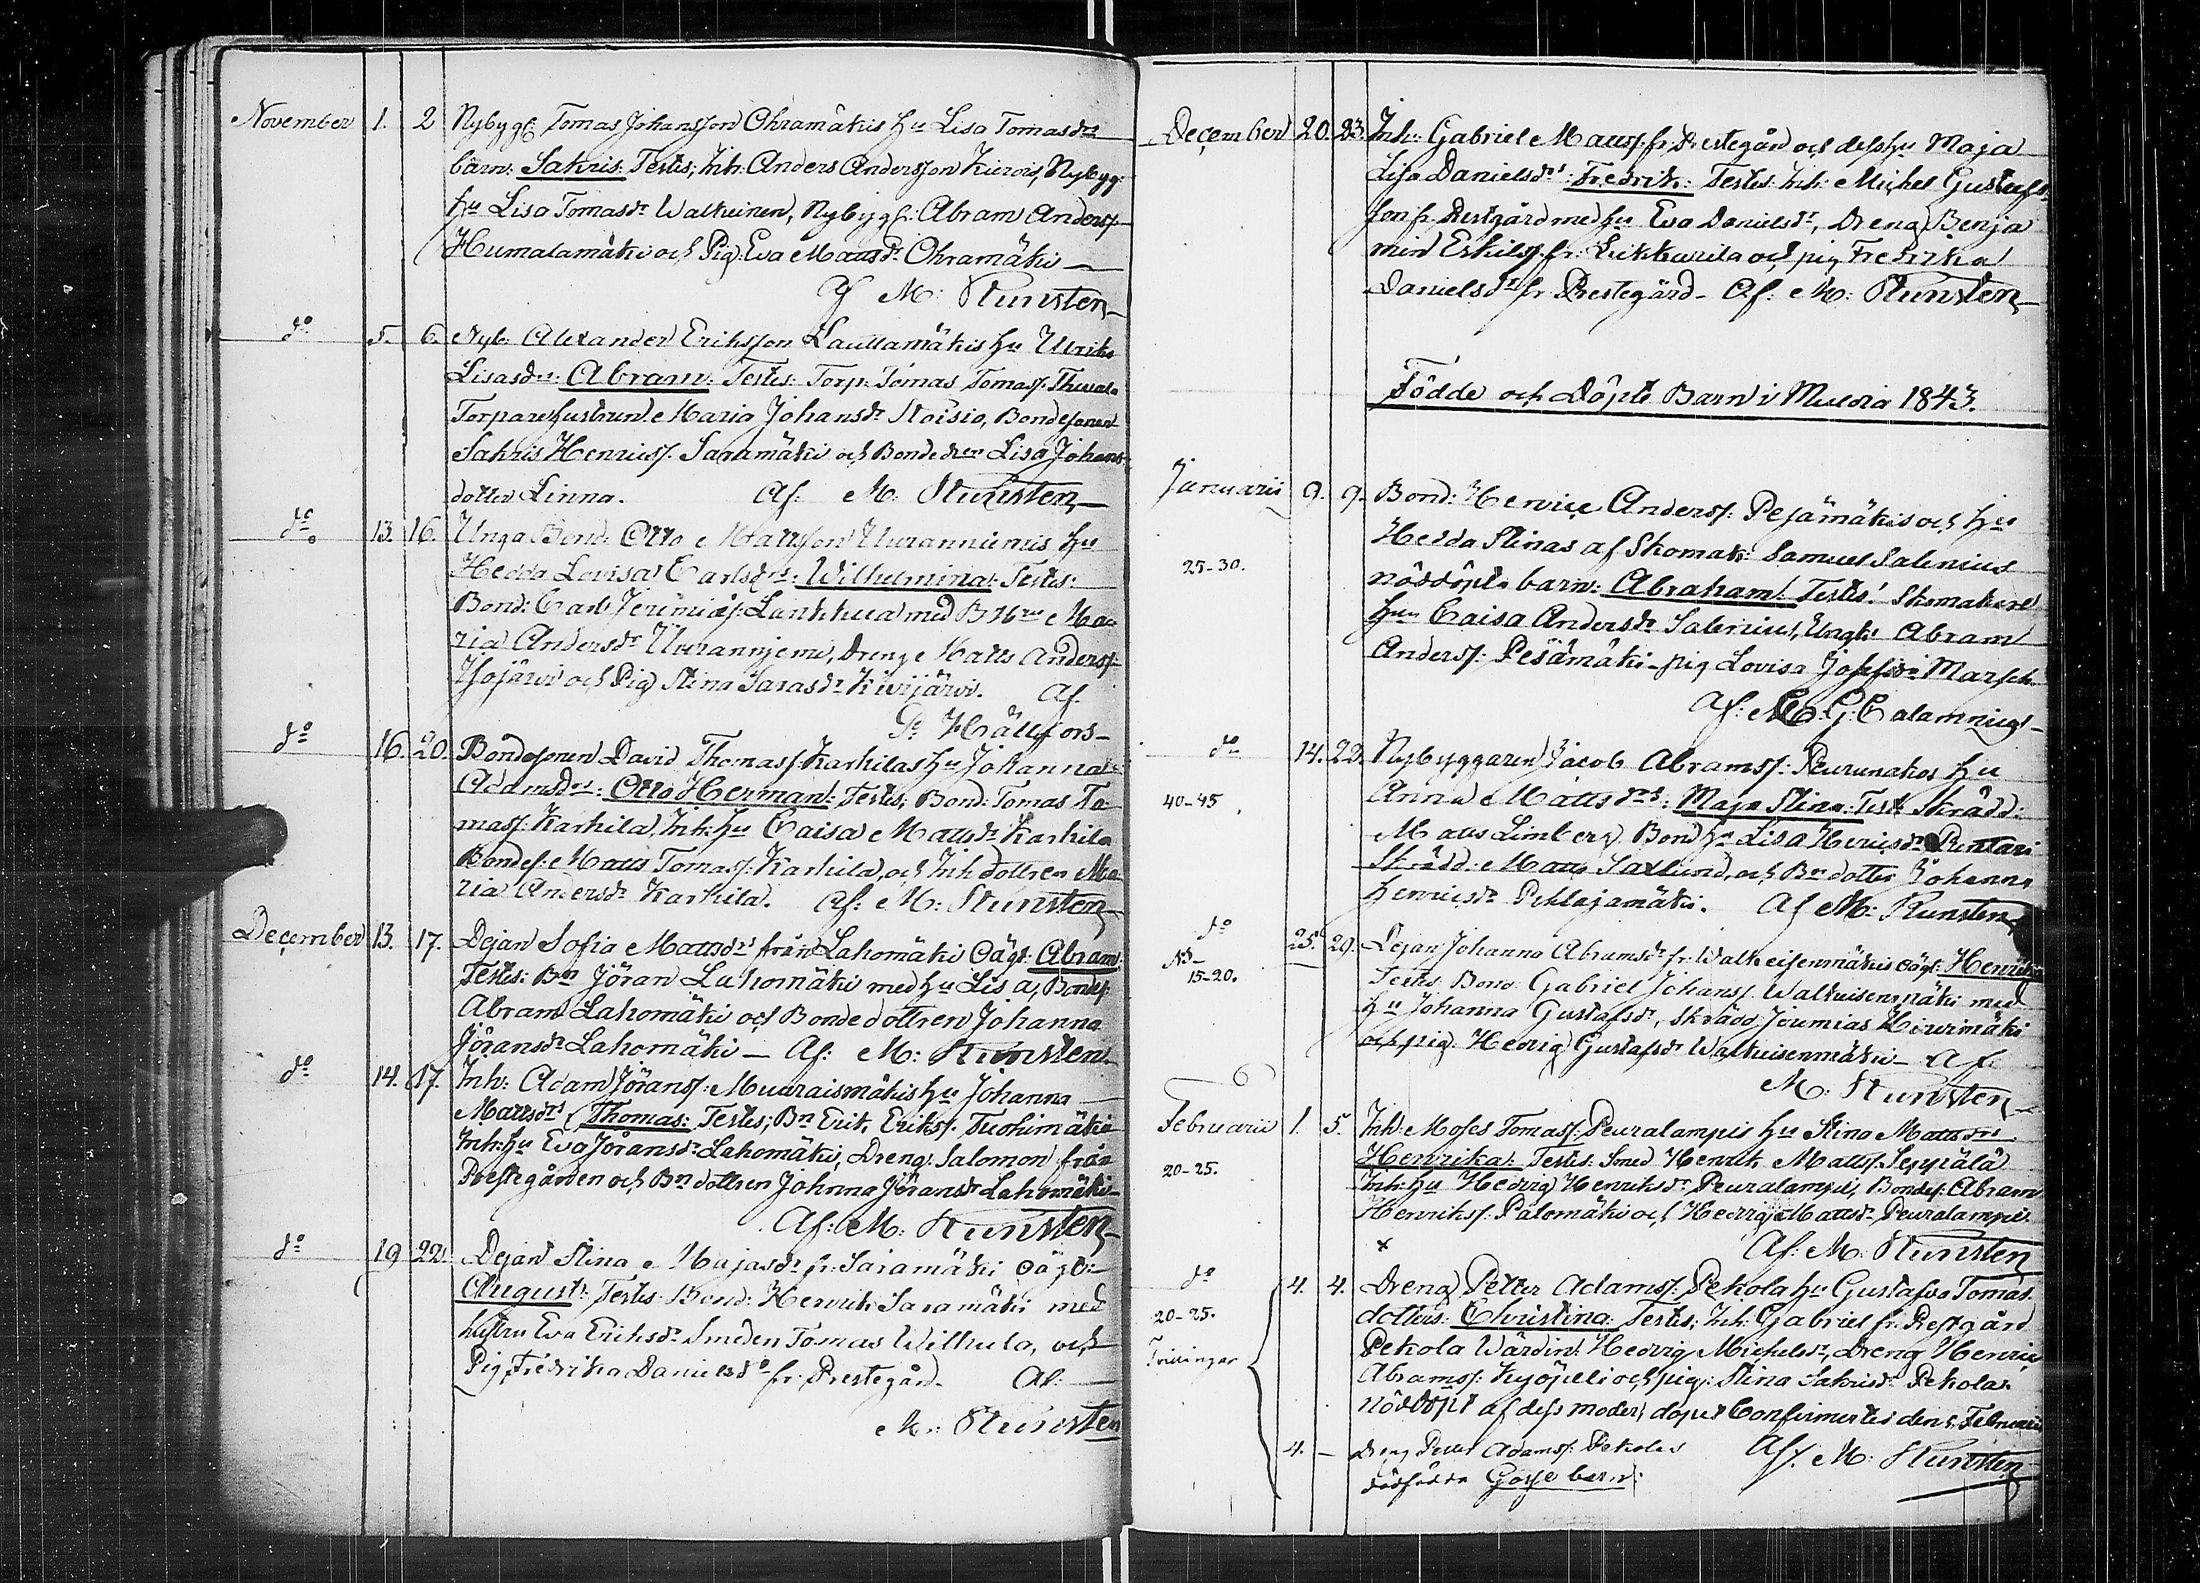 November 1. 2 Nybygg: Tomas Johansson Ohramäkis hu Lisa Tomasdrs
barn: Sakris: Testes; Inh: Anders Andersson Kierois, Nybygg:
hu Lisa Tomasdr Walkeinen, Nybygg: Abram Anderss:
Humalamäki och Pig: Eva Mattsdr Ohramäki
Af M: Stunsten
do 5. 6. Nyb: Alexander Eriksson Lauttamäkis hu Ulrika
Lisasdrs: Abram: Testes: Torp: Tomas Tomass:
Torparehustrun Maria Johansdr Noisio, Bondesonen
Sakris Henrics: Saramäki och Bondedr Lisa Johans
dotter Linna. Af: M: Stunsten
do 13. 16. Unga Bond: Otto Mattsson Uuranniemis hu
Hedda Lovisa Carlsdrs: Wilhelmina: Testes:
Bond: Carl Jeremias: Lankhua med B Hu Ma
ria Andersdr Uuranniemi, Dreng Matts Anderss:
Isojärvi och Pig Stina Sarasdr Kivijärvi. Af.
P: Hällfors
do 16. 20. Bondesonen David Thomass: Karhilas hu Johanna
Adamsdrs: Otto Herman: Testes; Bond: Tomas To
mass: Karhila, Inh: hu Caisa Mattsdr Karhila
Bondes: Matts Tomass: Karhila, och Inh dottren Ma
ria Andersdr Karhila. Af: M: Stunsten
December 13. 17. Dejan Sofia Mattsdrs från Lahomäki oägt: Abram
Testes: Bn Jöran Lahomäki med hu Lisa, Bondes:
Abram Lahomäki och Bondedottren Johanna
Jöransdr Lahomäki — Af: M: Stunsten
do 14. 17. Inh: Adam Jörans: Muuraismäkis hu Johanna
Mattsdrs Thomas: Testes; Bn Erik Eriks: Tuohimäki
Inh: hu Eva Jöransdr Lahomäki, Dreng Salomon från
Prestegården och Bn dottren Johnna Jöransdr Lahomäki
Af: M: Stunsten
do 19 22. Dejan Stina Majasdr fr: Saramäki oägt:
August: Testes: Bond: Henrik Saramäki med
hustru Eva Eriksdr Smeden Tomas Wilhula, och
Pig Fredrika Danielsdr fr: Prestegård. Af:
M: Stunsten
December 20. 23. Inh: Gabriel Matts: fr Prestegård och dess hu Maja
Lisa Danielsdrs: Fredrik: Testes: Inh: Michel Gustafs
son fr. Prestgård med hu Eva Danielsdr, Dreng Benja
min Eskils: fr: Leikkurila och pig Fredrika
Danielsdr fr Prestegård — Af: M: Stunsten
Födde och Döpte Barn i Multia 1843.
Januarii 9. 9. Bond: Henric Anderss: Pesämäkis och hus
Hedda Stinas af Skomak: Samuel Salenius
25-30. nöddöpte barn: Abraham: Testes: Skomakare
hun Caisa Andersdr Salenius, Ungk: Abram
Anderss: Pesämäki – pig Lovisa Josefsdr Marsch
Af: M: G: Calamnius
do 14. 22. Nybyggaren Jacob Abramss: Peurunakos hu
40-45 Anna Mattsdrs: Maja Stina: Test: Skrädd:
Matts Limberg Bond hu Lisa Henricsdr Pentari
Skrädd: Matts Saxlund, och Bn dotter Johanna
Henricsdr Pehlajamäki. Af M: Stunsten
do 25. 29. Dejan Johanna Abramsdr fr: Walkeisenmäkis oägt: Henrika
15-20. Testes Bond Gabriel Johans: Walkeisenmäki med
hu Johanna Gustafsdr, Skrädd: Kivimäki
och pig Hedvig Gustafsdr Walkeisenmäki — Af:
M: Stunsten
Februarii 1. 5. Inh: Moses Tomass: Peuralampis hu Stina Mattsdrs
20-25. Henrika: Testes: Smed Henrik Matts: Seppälä
Inh: hu Hedvig Henriksdr Peuralampi, Bondes: Abram
Henriks: Palomäki och Hedvig Mattsdr Peuralampi
x Af: M: Stunsten
do 4. 4. Dreng Petter Adamss: Pekola hu Gustafva Tomas
20-25. dotters: Christina: Testes; Inh: Gabriel fr: Prestgård
Tvillingar Pekola Wärdin: Hedvig Michelsdr, Dreng Henric
Abramss: och pig: Stina Sakrisdr Pekola.
Nöddöpt af dess moder, dopet Confirmertes den 5 Februarii
4. — Dreng Petter Adamss: Pekolas Af. M: Stunsten
dödfödda Gosse barn: